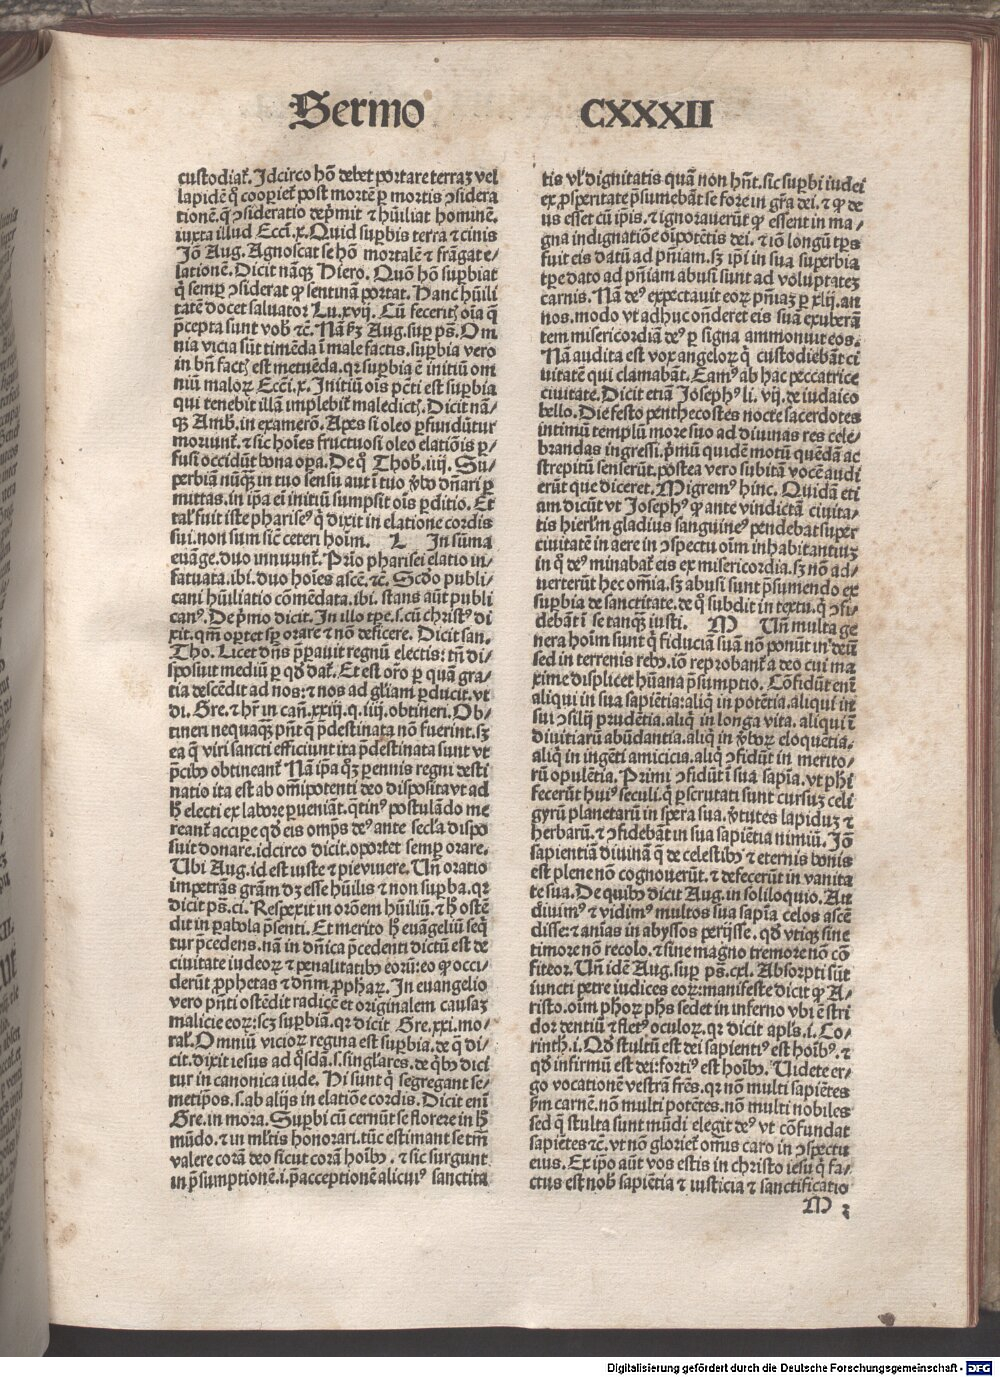 Sermo CXXXII
custodiat᷑. Idcirco hõ debet portare terraꝫ vel
lapidẽ q̃ cooperiet᷑ post mortẽ ꝑ mortis ꝯsidera
tionẽ. q̃ ꝯsideratio dep̃mit ⁊ hũiliat hominẽ.
iuxta illud Ecc̃i. x. Quid suꝑbis terra ⁊ cinis
Iõ Aug. Agnoscat se hõ mortalẽ ⁊ frãgat e⸗
lationẽ. Dicit nãqꝫ Hiero. Quõ hõ suꝑbiat
q̃ semꝑ ꝯsiderat ꝙ sentinaꝫ portat. Hanc hũili
tatẽ docet saluator Lu. xvij. Cũ feceritꝭ oĩa q̃
p̃cepta sunt vob̃ ⁊c̃. Nã ßꝫ Aug. suꝑ ps̃. Om
nia vicia sũt timẽda ĩ male factis. suꝑbia vero
in bñ factꝭ est metuẽda. qꝛ suꝑbia ẽ initiũ om
niũ maloꝝ Ecc̃i. x. Initiũ oĩs pc̃ti est suꝑbia
qui tenebit illã implebit᷑ maledictꝭ. Dicit nã⸗
qꝫ Amb̃. in examerõ. Apes si oleo ꝑfundũtur
moriunt᷑. ⁊ sic hoĩes fructuosi oleo elatiõis ꝑ⸗
fusi occidũt bona oꝑa. De q̃ Thob̃. iiij. Su⸗
perbiã nũqꝫ in tuo sensu aut ĩ tuo ṽbo dñari ꝑ
mittas. in ip̃a eñ initiũ sumpsit oĩs ꝑditio. Et
tal᷑ fuit iste phariseꝰ q̃ dixit in elatione cordis
sui. non sum sic̃ ceteri hoĩm. L In sũma
euãge. duo innuunt᷑. Prĩo pharisei elatio in⸗
fatuata. ibi. duo hoĩes ascẽ. ⁊c̃. Scd̃o publi⸗
cani hũiliatio cõmẽdata. ibi. stans aũt publi
canꝰ. De p̃mo dicit. In illo tꝑe. s. cũ christꝰ di
xit. qm̃ oꝑtet sꝑ orare ⁊ nõ deficere. Dicit san.
Tho. Licet dñs p̃ꝑauit regnũ electis: tñ di⸗
sposuit mediũ ꝑ qd̃ dat᷑. Et est or̃o ꝑ quã gra⸗
tia descẽdit ad nos: ⁊ nos ad gl̃iam ꝑducit. vt
di. Gre. ⁊ hr̃ in cañ. xxiij. q. iiij. obtineri. Ob⸗
tineri nequaqꝫ pñt q̃ p̃destinata nõ fuerint. sꝫ
ea q̃ viri sancti efficiunt ita p̃destinata sunt vt
p̃cibꝰ obtineant᷑ Nã ip̃a qꝫ ꝑennis regni desti
natio ita est ab om̃ipotenti deo disposita vt ad
h̃ electi ex labore ꝑueniãt. qtinꝰ postulãdo me
reant᷑ acciꝑe qd̃ eis omp̃s deꝰ ante secl̃a dispo
suit donare. idcirco dicit. oportet semꝑ orare.
Ubi Aug. id est iuste ⁊ pie viuere. Uñ oratio
impetrãs gr̃am dꝫ esse hũilis ⁊ non suꝑba. qꝛ
dicit ps̃. ci. Respexit in or̃oẽm hũiliũ. ⁊ h̃ ostẽ
dit in ꝑabola p̃senti. Et merito h̃ euãgeliũ seq̃
tur p̃cedens. nã in dñica p̃cedenti dictũ est de
ciuitate iudeoꝝ ⁊ penalitatibꝰ eorũ: eo ꝙ occi⸗
derũt ꝓphetas ⁊ dñm ꝓphaꝝ. In euangelio
vero pñti ostẽdit radicẽ et originalem causaꝫ
malicie eoꝝ: scꝫ suꝑbiã. qꝛ dicit Gre. xxi. mo⸗
ral᷑. Omniũ vicioꝝ regina est suꝑbia. de q̃ di⸗
cit. dixit iesus ad q̃sdã. s. singl̃ares. de q̃bꝰ dici
tur in canonica iude. Hi sunt q̃ segregant se⸗
metip̃os. s. ab alijs in elatiõe cordis. Dicit enĩ
Gre. in mora. Suꝑbi cũ cernũt se florere in h̃
mũdo. ⁊ in ml̃tis honorari. tũc estimant se tm̃
valere corã deo sicut corã hoĩbꝰ. ⁊ sic surgunt
in p̃sumptionẽ. i. p̃acceptionẽ alicuiꝰ sanctita
tis vl᷑ dignitatis quã non hñt. sic suꝑbi iudei
ex ꝓsperitate p̃sumebãt se fore in gr̃a dei. ⁊ ꝙ de
us esset cũ ip̃is. ⁊ ignorauerũt ꝙ essent in ma⸗
gna indignatiõe oĩpotẽtis dei. ⁊ iõ longũ tp̃s
fuit eis datũ ad pñiam. sꝫ ip̃i in sua superbia
tꝑe dato ad pñiam abusi sunt ad voluptateꝫ
carnis. Nã deꝰ expectauit eoꝝ pñiaꝫ ꝑ xlij. an
nos. modo vt adhuc oñderet eis suã exuberã
tem misericordiã deꝰ ꝑ signa ammonuit eos.
Nã audita est vox angeloꝝ q̃ custodiebãt ci
uitatẽ qui clamabãt. Eamꝰ ab hac peccatrice
ciuitate. Dicit etiã Josephꝰ li. vij. de iudaico
bello. Die festo penthecostes nocte sacerdotes
intimũ templũ more suo ad diuinas res cele⸗
brandas ingressi. p̃mũ quidẽ motũ quẽdã ac
strepitũ senserũt. postea vero subitã vocẽ audi
erũt que diceret. Migremꝰ hinc. Quidã eti
am dicũt vt Josephꝰ ꝙ ante vindictã ciuita⸗
tis hierl̃m gladius sanguineꝰ pendebat super
ciuitatẽ in aere in ꝯspectu oĩm inhabitantiuꝫ
in q̃ deꝰ minabat᷑ eis ex misericordia. sꝫ nõ ad⸗
uerterũt hec om̃ia. sꝫ abusi sunt p̃sumendo ex
suꝑbia de sanctitate. de q̃ subdit in textu. q̃ ꝯfi⸗
debãt ĩ se tanqꝫ iusti. M Uñ multa ge
nera hoĩm sunt q̃ fiduciã suã nõ ponũt in deũ
sed in terrenis rebꝰ. iõ reprobant᷑ a deo cui ma
xime displicet hũana p̃sumptio. Cõfidũt enĩ
aliqui in sua sapiẽtia: aliq̃ in potẽtia. aliqui in
sui ꝯsilij prudẽtia. aliq̃ in longa vita. aliqui ĩ
diuitiarũ abũdantia. aliq̃ in ṽboꝝ eloquẽtia.
aliq̃ in ingẽti amicicia. aliq̃ ꝯfidũt in merito⸗
rũ opulẽtia. Primi ꝯfidũt ĩ sua sapĩa. vt ph̃i
fecerũt huiꝰ seculi. q̃ ꝑscrutati sunt cursuꝫ celi
gyrũ planetarũ in spera sua. ṽtutes lapiduꝫ ⁊
herbarũ. ⁊ ꝯfidebãt in sua sapiẽtia nimiũ. Iõ
sapientiã diuinã q̃ de celestibꝰ ⁊ eternis bonis
est plene nõ cognouerũt. ⁊ defecerũt in vanita
te sua. De quibꝰ dicit Aug. in soliloquio. Au
diuimꝰ ⁊ vidimꝰ multos sua sapĩa celos ascẽ
disse: ⁊ anĩas in abyssos perijsse. qd̃ vtiqꝫ sine
timore nõ recolo. ⁊ sine magno tremore nõ cõ
fiteor. Uñ idẽ Aug. suꝑ ps̃. cxl. Absorpti sũt
iuncti petre iudices eoꝝ: manifeste dicit ꝙ A⸗
risto. oĩm ph̃oꝝ ph̃s sedet in inferno vbi ẽ stri
dor dentiũ ⁊ fletꝰ oculoꝝ. qꝛ dicit apl̃s. i. Co⸗
rinth̃. i. Qd̃ stultũ est dei sapientiꝰ est hoĩbꝰ. ⁊
qd̃ infirmũ est dei: fortiꝰ est hoĩbꝰ. Uidete er⸗
go vocationẽ vestrã fr̃es. qꝛ nõ multi sapiẽtes
ßm carnẽ. nõ multi potẽtes. nõ multi nobiles
sed q̃ stulta sunt mũdi elegit deꝰ vt cõfundat
sapiẽtes ⁊c̃. vt nõ gloriet᷑ om̃is caro in ꝯspectu
eius. Ex ip̃o aũt vos estis in christo iesu q̃ fa⸗
ctus est nob̃ sapiẽtia ⁊ iusticia ⁊ sanctificatio
M 2
Digitalisierung gefördert durch die Deutsche Forschungsgemeinschaft - DFG